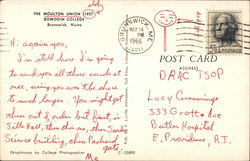 old
THE MOULTON UNION 1927
BOWDOIN COLLEGE
Brunswick, Maine
Hi again you,
I'm still here I'm going
to send you all these cards at
once, seeing you won't be there
to much longer. You might get
them out of order but first, is
Sills Hall, then this one, then
Science building, then Packard
gate.
Me
Ektachrome by College Photographer
C-25895
BRUNSWICK, ME.
MAY 14
PM
1966
POST CARD
ADDRESS
DRAC TSOP
Lucy Cummings
333 Grotto Ave
Butler Hospital
E. Providence, R.I.